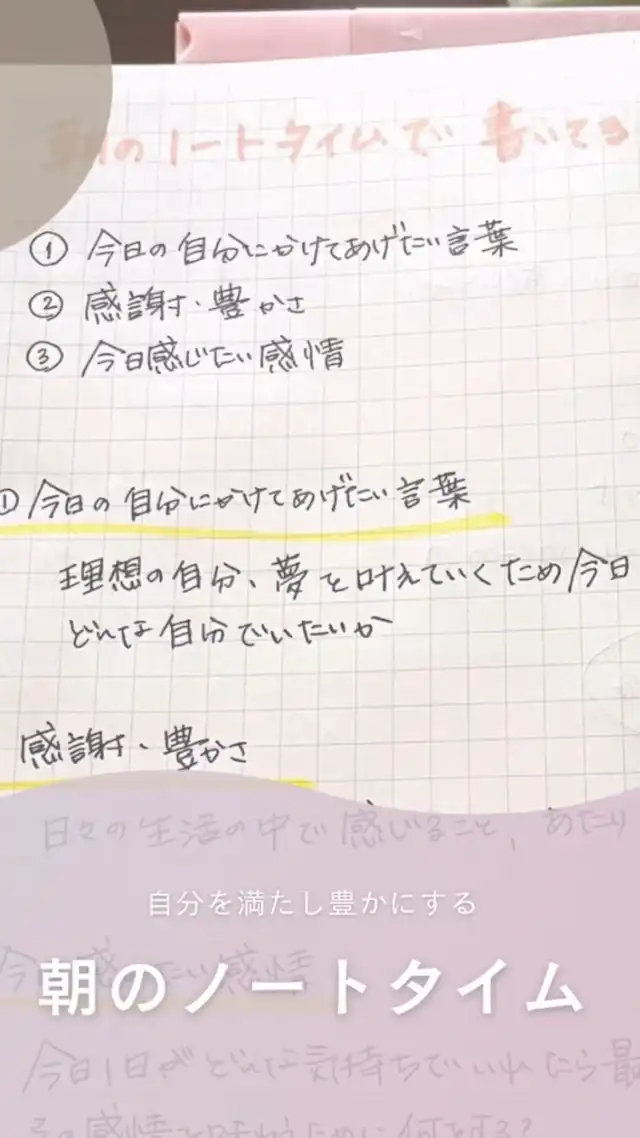 朝のノートタイムで 書いてる
① 今日の自分にかけてあげたい言葉
② 感謝・豊かさ
③ 今日感じたい感情
① 今日の自分にかけてあげたい言葉
理想の自分、夢を叶えていくため今日
どんな自分でいたいか
感謝・豊かさ
日々の生活の中で感じること、あたり
自分を満たし豊かにする
今 感じたい感情
朝のノートタイム
今日1日がどんな気持ちでいれたら最
その感情を味わうために何をする?